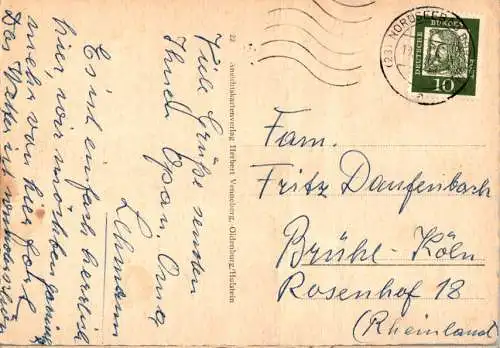 Viele Grüße senden
Ihnen Opa u. Oma
Lehmann
Es ist einfach herrlich
hier, wir möchten garnicht
mehr von hier fort
Das Wetter ist wunderschön
22 Ansichtskartenverlag Herbert Venneberg, Oldenburg/Holstein
(23) NORD
DEUTSCHE
BUNDESPOST
10
Fam.
Fritz Daufenbach
Brühl Köln
Rosenhof 18
(Rheinland)